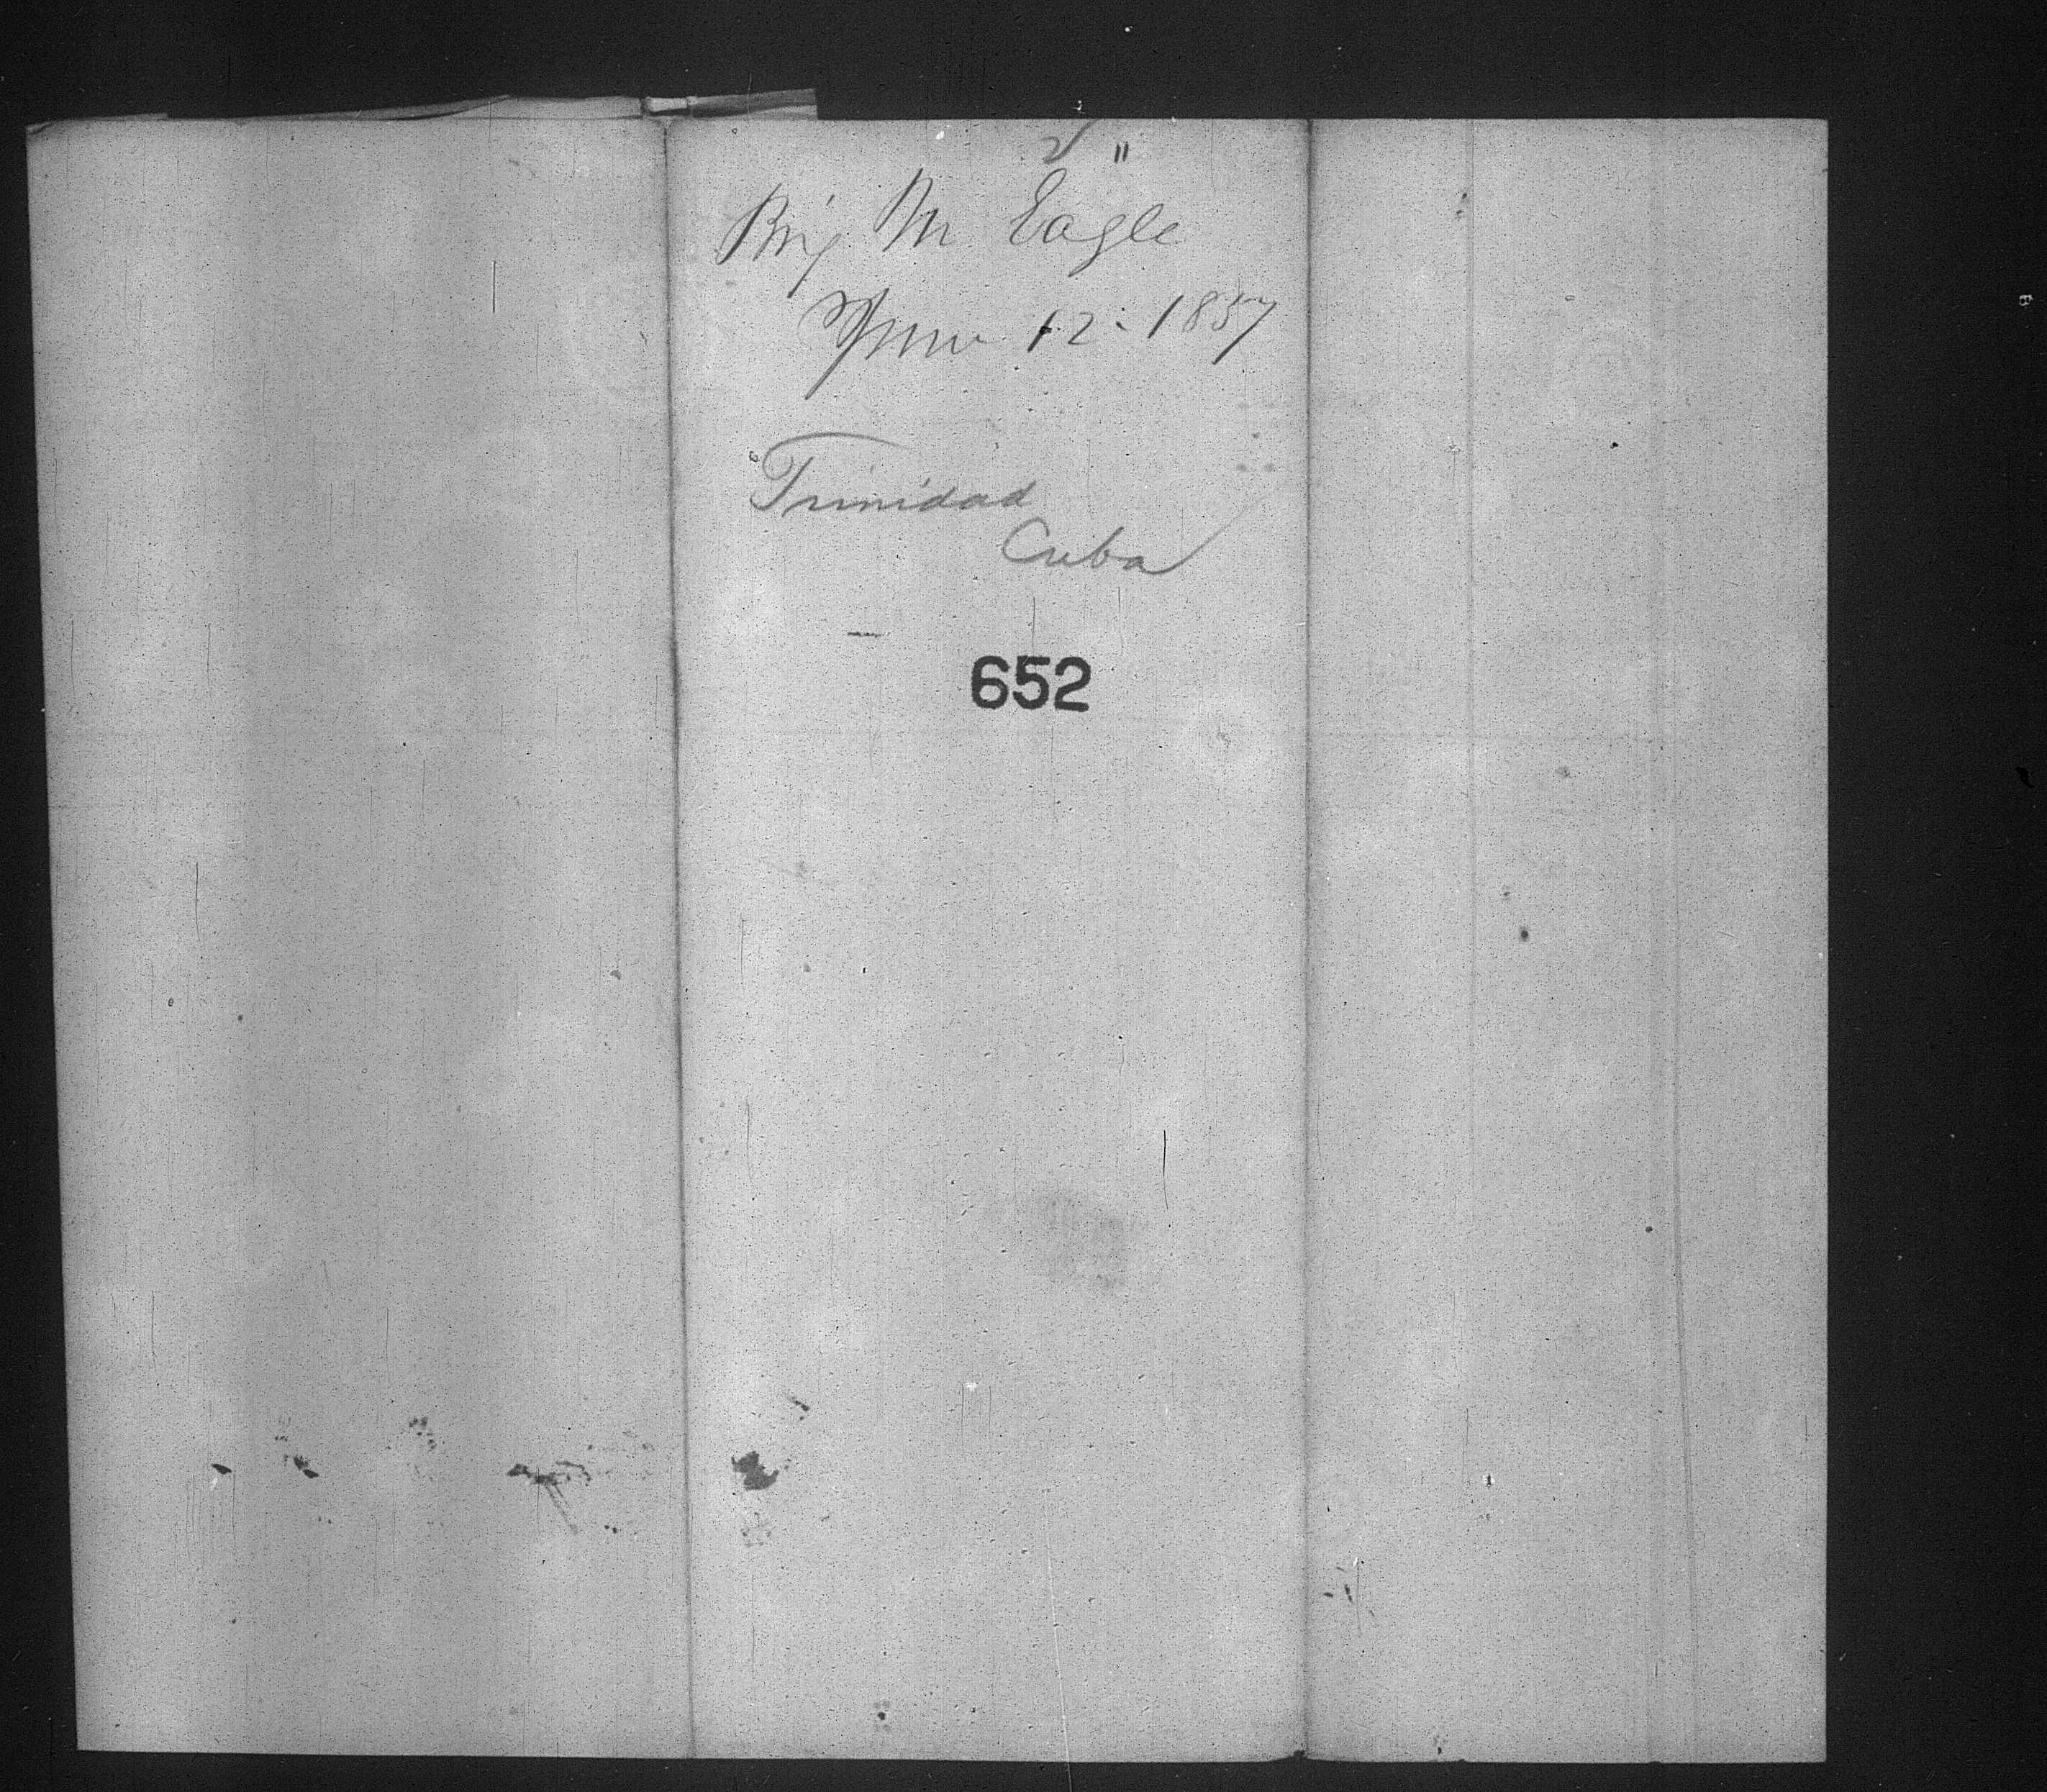 Brig Wm Eagle
June 12. 1857
Trinidad
Cuba
652